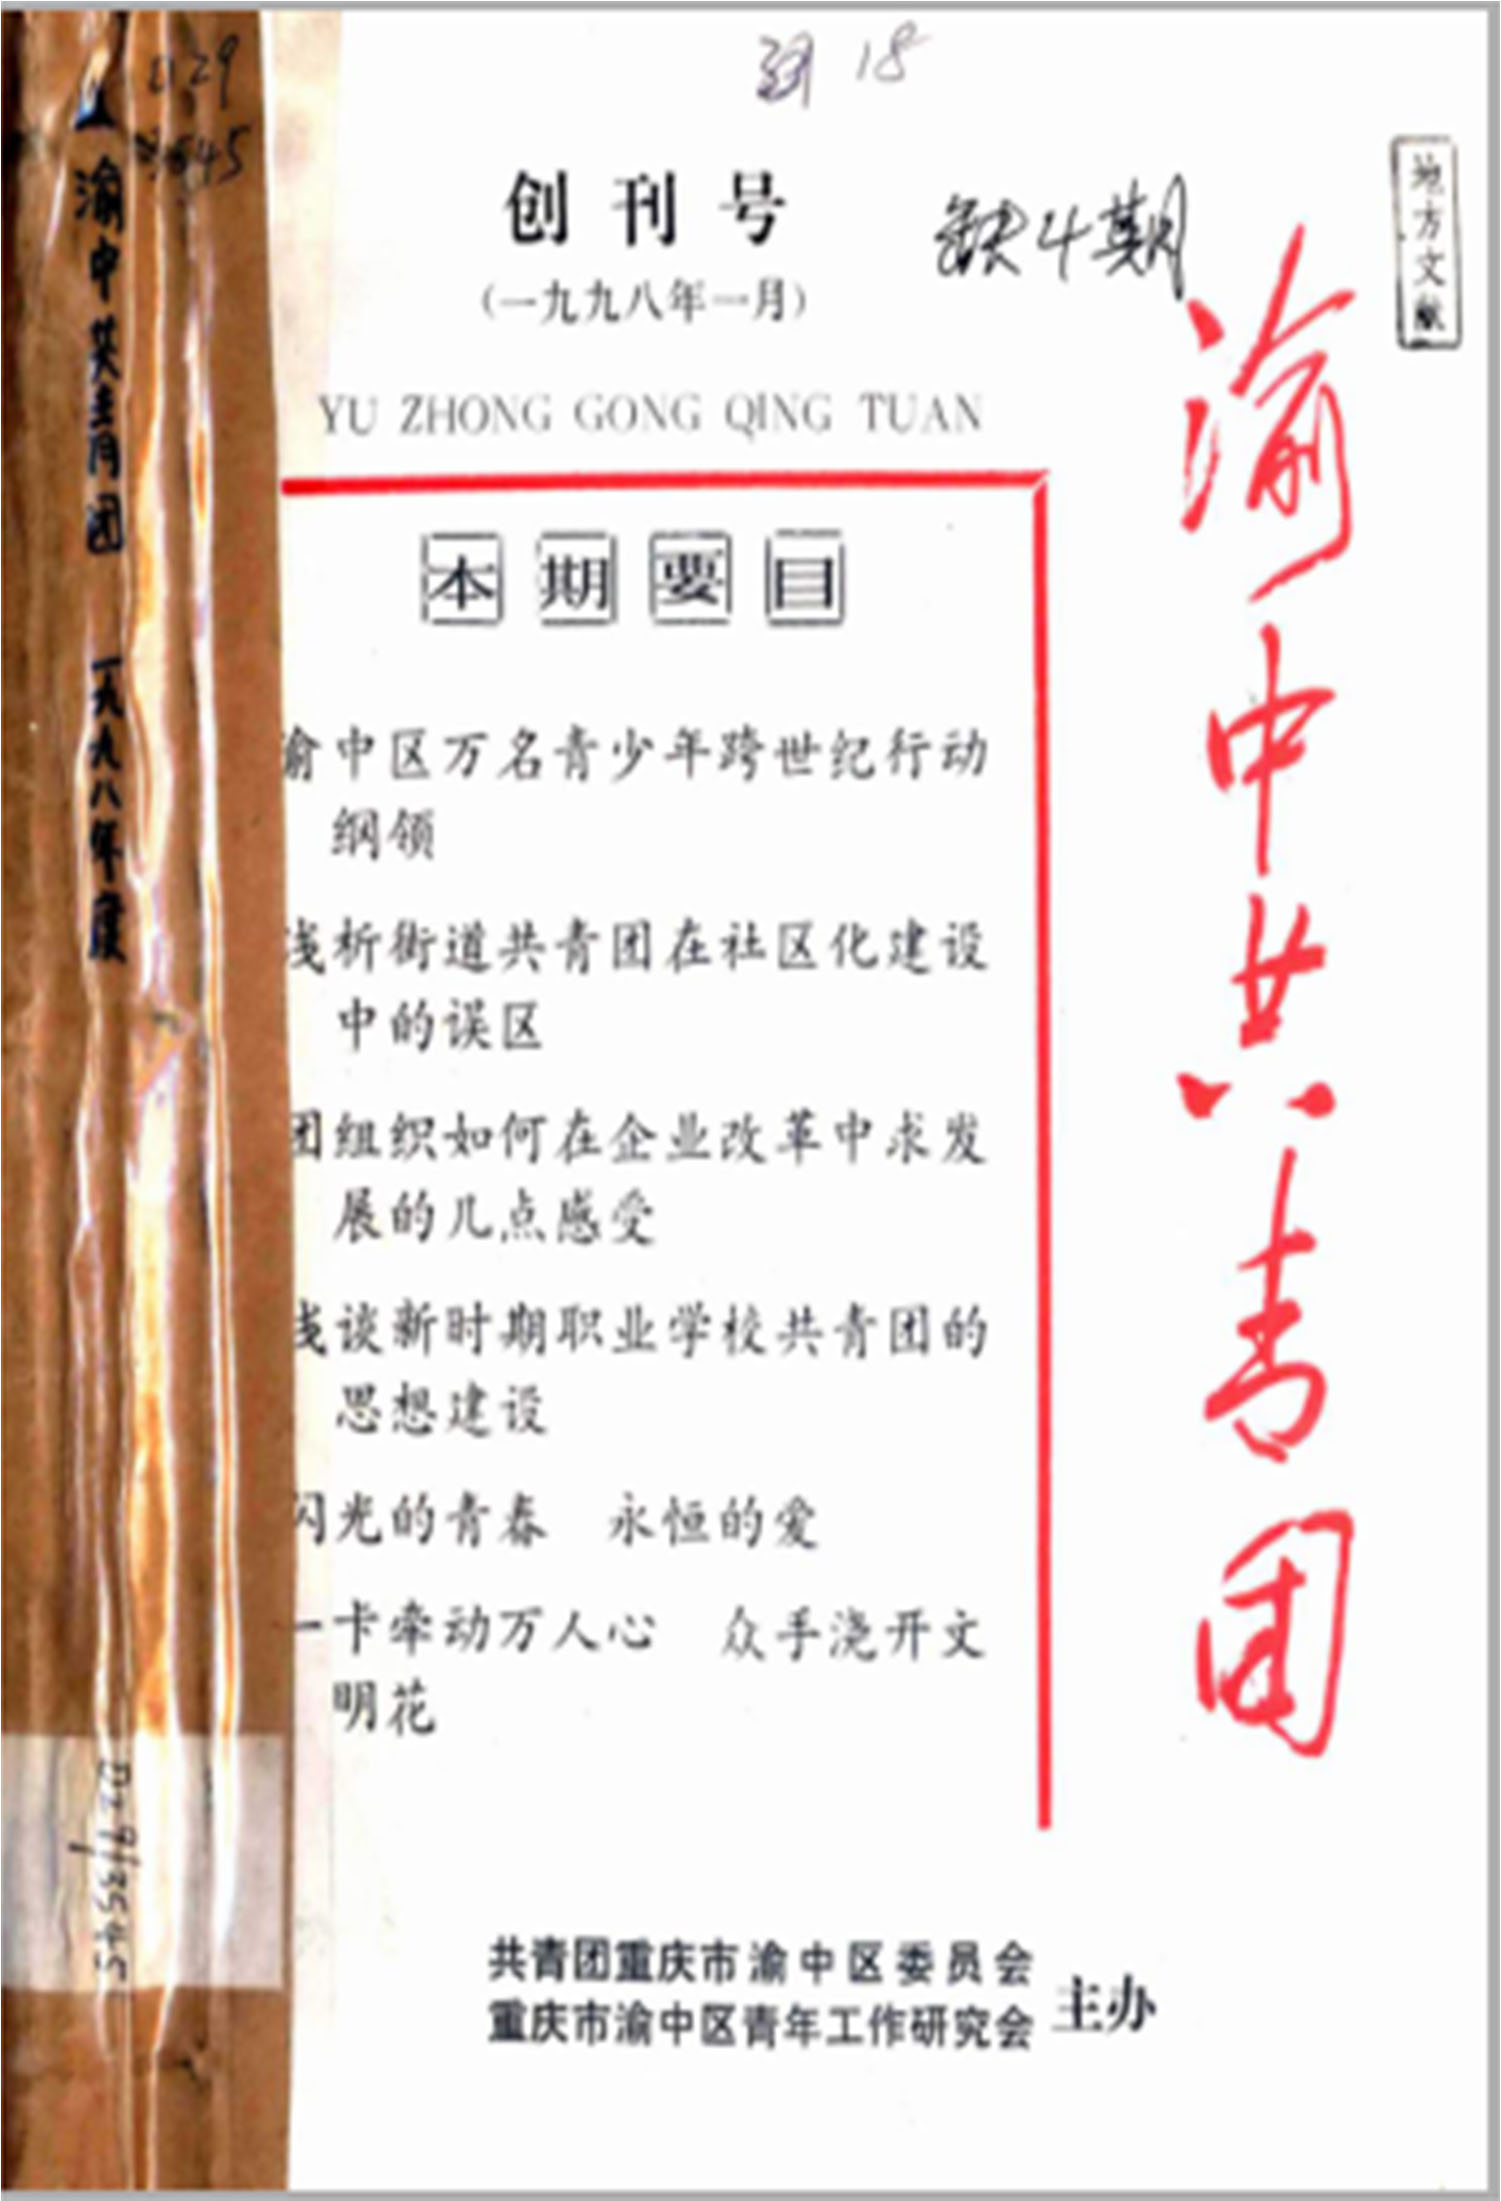 渝中共青团 一九九八年度
D29
3545
D29/3545
18
创刊号
(一九九八年一月)
缺4期
地方文献
YU ZHONG GONG QING TUAN
渝中共青团
本期要目
渝中区万名青少年跨世纪行动
纲领
浅析街道共青团在社区化建设
中的误区
团组织如何在企业改革中求发
展的几点感受
浅谈新时期职业学校共青团的
思想建设
闪光的青春 永恒的爱
一卡牵动万人心 众手浇开文
明花
共青团重庆市渝中区委员会
重庆市渝中区青年工作研究会
主办